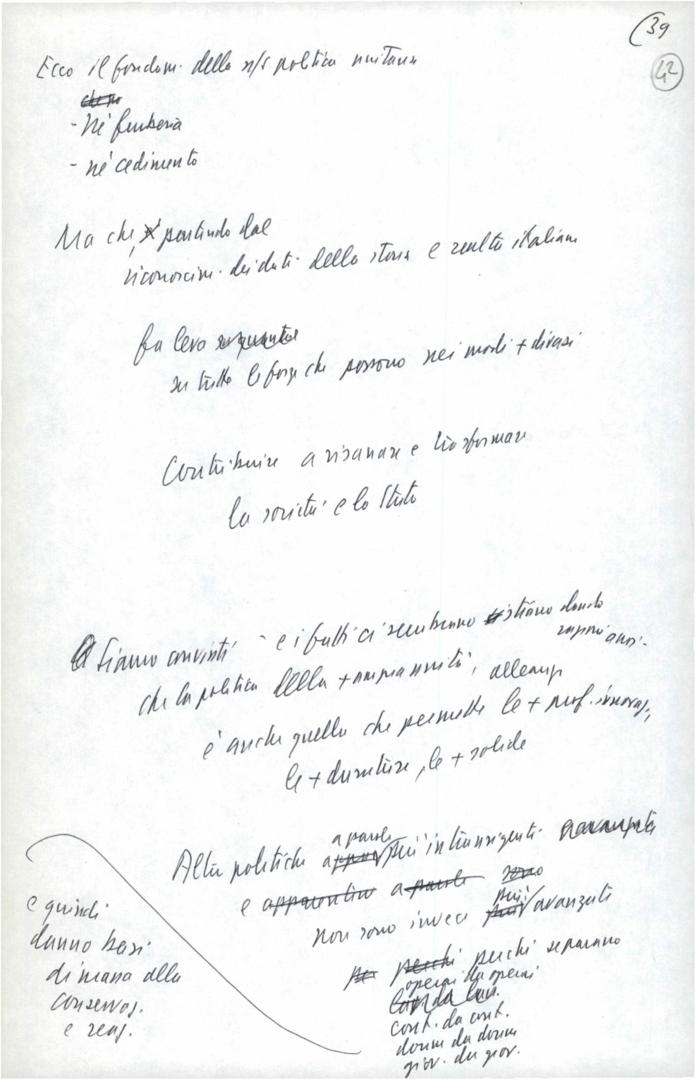 (39
42
Ecco il fondam. della n/s politica unitaria
che n
- Né furberia
- né cedimento
Ma che, partendo dal
riconoscim. dei dati della storia e realtà italiana
fa leva
su tutte le forze che possono nei modi + diversi
Contribuire a risanare e trasformare
la società e lo Stato
Siamo convinti - e i fatti ci sembrano stiano dando
ragione
che la politica della + ampia unità, alleanze
è anche quella che permette le + prof. innovaz.,
le + durature, le + solide
a parole
Altre politiche più intransigenti
e apparentem. a parole
non sono invece più avanzate
perché perché separano
operai da operai
cont. da cont.
donne da donne
giov. da giov.
e quindi
danno basi
di massa alla
conservaz.
e reaz.